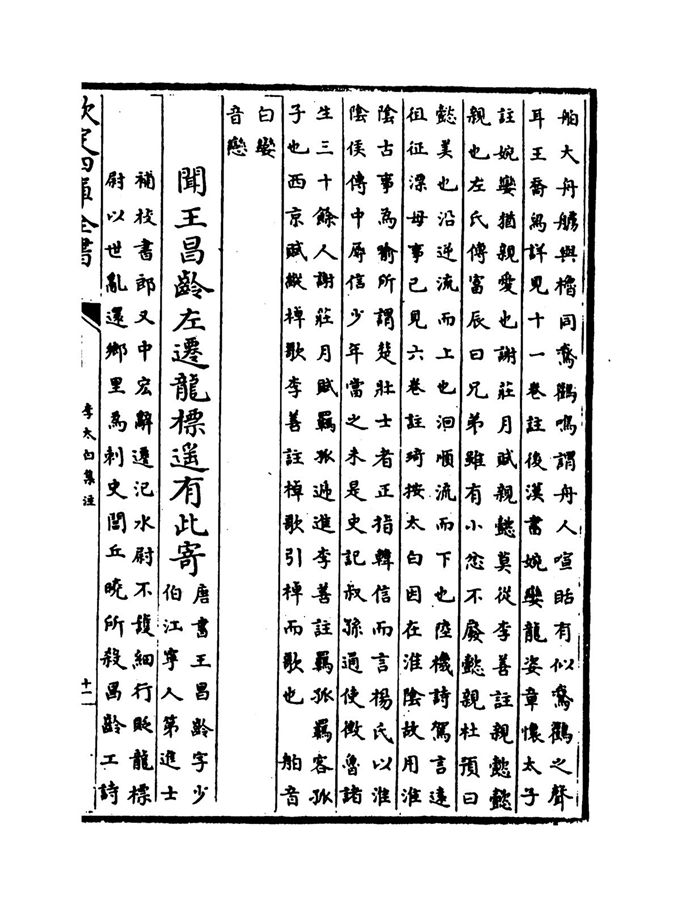 舶大舟艣與櫓同鵞鸛鳴謂舟人喧聒有似鵞鸛之聲
耳王喬舄詳見十一卷註後漢書婉孌龍姿章懷太子
註婉孌猶親愛也謝莊月賦親懿莫從李善註親懿懿
親也左氏傳富辰曰兄弟雖有小忿不廢懿親杜預曰
懿美也沿逆流而上也洄順流而下也陸機詩駕言遠
徂征漂母事已見六卷註琦按太白因在淮陰故用淮
陰古事為喻所謂楚壯士者正指韓信而言楊氏以淮
陰侯傳中辱信少年當之未是史記叔孫通使徴魯諸
生三十餘人謝莊月賦羈孤遞進李善註羈孤羈客孤
子也西京賦縱棹歌李善註棹歌引棹而歌也 舶音
白孌
音戀
聞王昌齡左遷龍標遥有此寄
唐書王昌齡字少
伯江寧人第進士
補校書郎又中宏辭遷汜水尉不護細行貶龍標
尉以世亂還鄉里為刺史閭丘曉所殺昌齡工詩
欽定四庫全書
李太白集注
十二